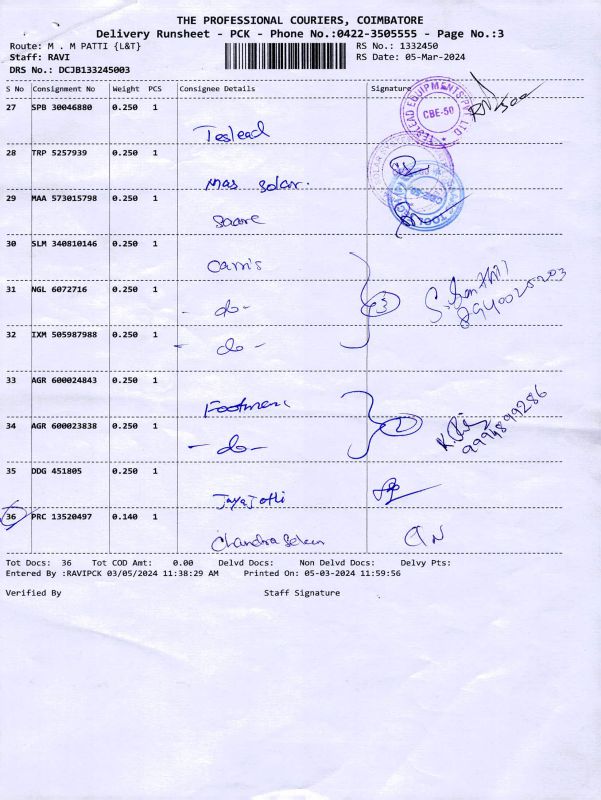 THE PROFESSIONAL COURIERS, COIMBATORE
Delivery Runsheet - PCK - Phone No.:0422-3505555 - Page No.:3
Route: M . M PATTI {L&T} RS No.: 1332450
Staff: RAVI RS Date: 05-Mar-2024
DRS No.: DCJB133245003
S No Consignment No Weight PCS Consignee Details Signature
27 SPB 30046880 0.250 1
Teslead
TESLEAD EQUIPMENTS PVT LTD
CBE-50
28 TRP 5257939 0.250 1
Mas Solar.
29 MAA 573015798 0.250 1
30 SLM 340810146 0.250 1
31 NGL 6072716 0.250 1
- do - 3
32 IXM 505987988 0.250 1
- do -
33 AGR 600024843 0.250 1
34 AGR 600023838 0.250 1
- do - 2
9994899286
35 DDG 451805 0.250 1
Jaya Jothi
36 PRC 13520497 0.140 1
Tot Docs: 36 Tot COD Amt: 0.00 Delvd Docs: Non Delvd Docs: Delvy Pts:
Entered By :RAVIPCK 03/05/2024 11:38:29 AM Printed On: 05-03-2024 11:59:56
Verified By Staff Signature